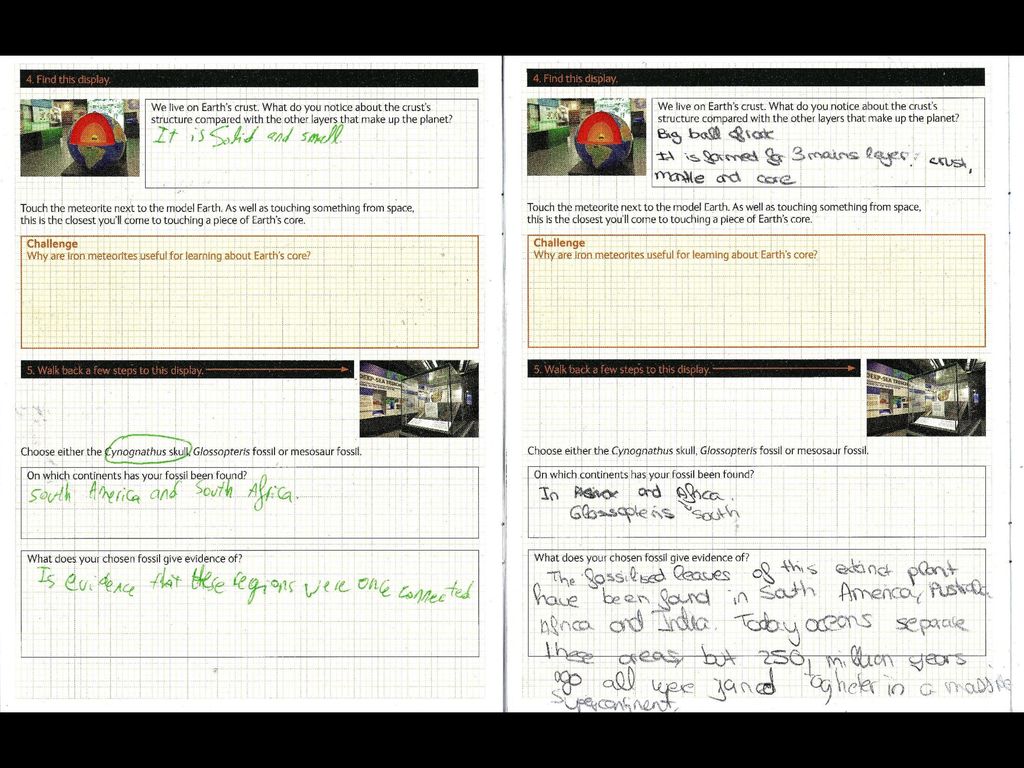 4. Find this display.
We live on Earth's crust. What do you notice about the crust's
structure compared with the other layers that make up the planet?
It is Solid and small.
Touch the meteorite next to the model Earth. As well as touching something from space,
this is the closest you'll come to touching a piece of Earth's core.
Challenge
Why are iron meteorites useful for learning about Earth's core?
5. Walk back a few steps to this display.
DEEP-SEA TRENCH
Choose either the Cynognathus skull, Glossopteris fossil or mesosaur fossil.
On which continents has your fossil been found?
South America and South Africa.
What does your chosen fossil give evidence of?
Is evidence that these regions were once connected
4. Find this display.
We live on Earth's crust. What do you notice about the crust's
structure compared with the other layers that make up the planet?
Big ball of rock
It is formed for 3 mains layer: crust,
mantle and core
Touch the meteorite next to the model Earth. As well as touching something from space,
this is the closest you'll come to touching a piece of Earth's core.
Challenge
Why are iron meteorites useful for learning about Earth's core?
5. Walk back a few steps to this display.
DEEP-SEA TRENCH
Choose either the Cynognathus skull, Glossopteris fossil or mesosaur fossil.
On which continents has your fossil been found?
In and Africa.
Glossopteris South
What does your chosen fossil give evidence of?
The fossilised leaves of this extinct plant
have been found in South America, Australia
Africa and India. Today oceans separate
these areas, but 250, million years
ago all were joined togheter in a massive
Supercontinent.